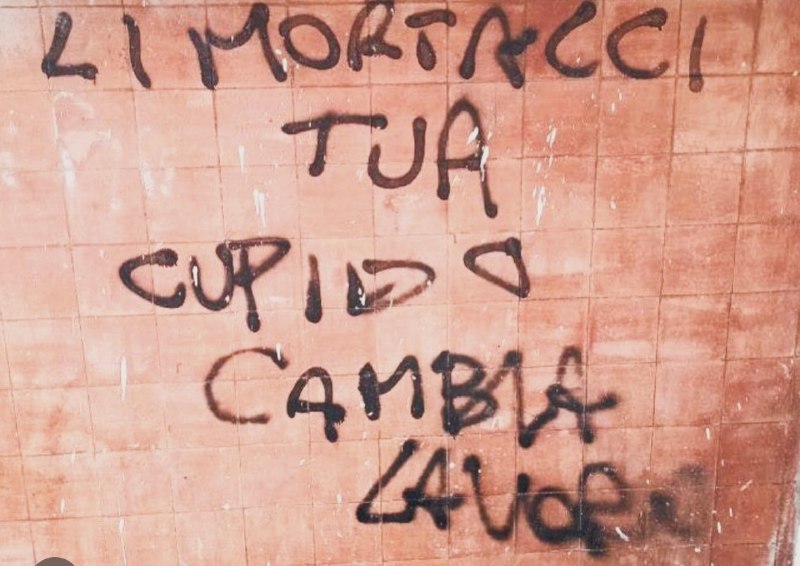 LI MORTACCI
TUA
CUPIDO
CAMBIA
LAVORO